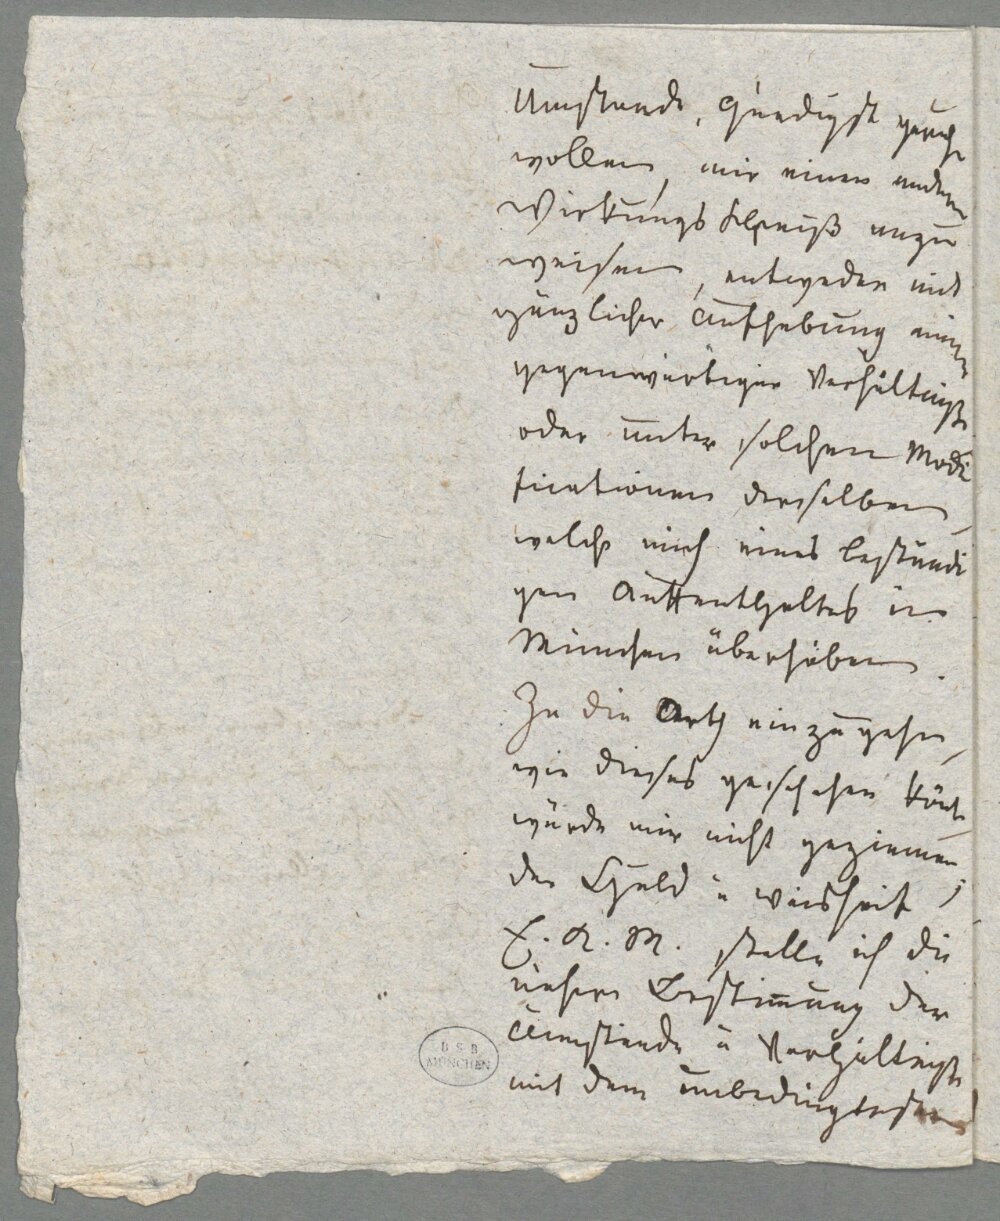 Umstände, gnädigst geruhe
wollen, mir einen andern
Wirkungskreiß anzu
weisen, entweder mit
gänzlicher Aufhebung meiner
gegenwärtigen Verhältniße
oder unter solchen Modi
ficationen derselben,
welche mich eines beständi
gen Auffenthaltes in
München überhöben.
In die Arth einzugehen,
wie dieses geschehen könte
würde mir nicht geziemen;
der Huld u Weisheit
E. K. M. stelle ich die
nähere Bestimmung der
Umstände u Verhältniße
mit dem unbedingtesten
BSB
MÜNCHEN